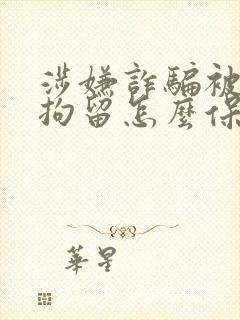 涉嫌詐騙被
拘留怎麼保
華星